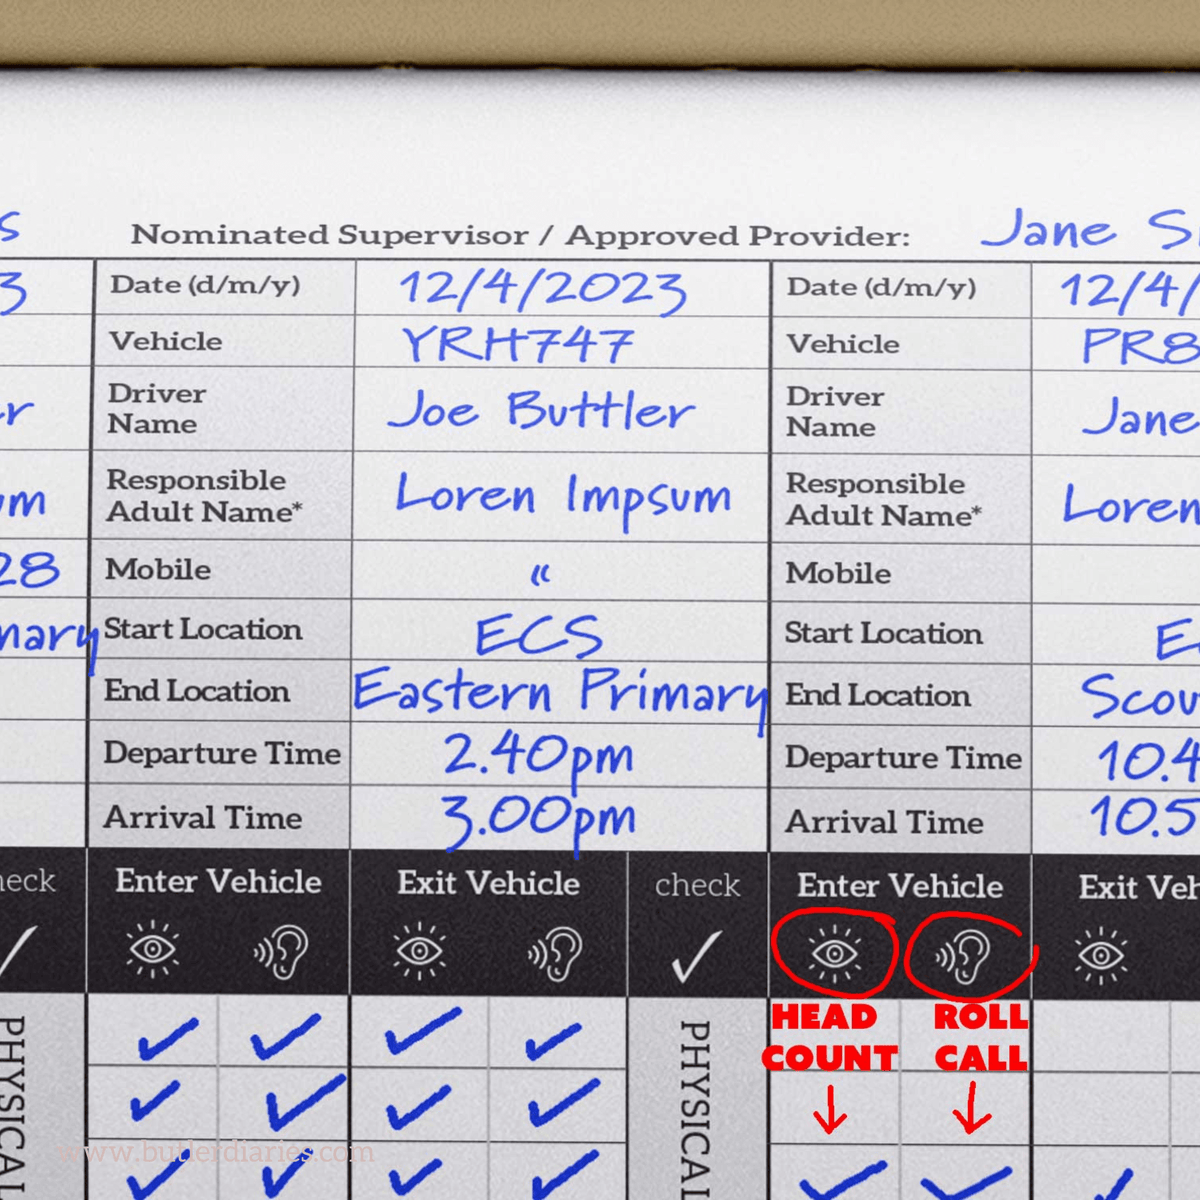 s Nominated Supervisor / Approved Provider: Jane S
3 Date (d/m/y) 12/4/2023 Date (d/m/y) 12/4/
Vehicle YRH747 Vehicle PR8
r Driver Name Joe Buttler Driver Name Jane
um Responsible Adult Name* Loren Impsum Responsible Adult Name* Loren
28 Mobile " Mobile
mary Start Location ECS Start Location E
End Location Eastern Primary End Location Scou
Departure Time 2.40pm Departure Time 10.4
Arrival Time 3.00pm Arrival Time 10.5
heck Enter Vehicle Exit Vehicle check Enter Vehicle Exit Veh
HEAD COUNT ROLL CALL
PHYSICAL PHYSICAL
www.butlerdiaries.com